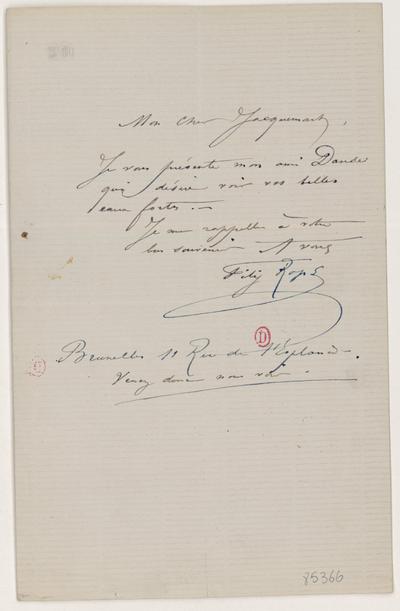 Mon cher Jacquemart,
Je vous présente mon ami Danse
qui désire voir vos belles
eaux fortes. —
Je me rappelle à votre
bon souvenir A vous
Félix Rops
D
Bruxelles 11 Rue de l'Esplanade.
Venez donc nous voir
85366